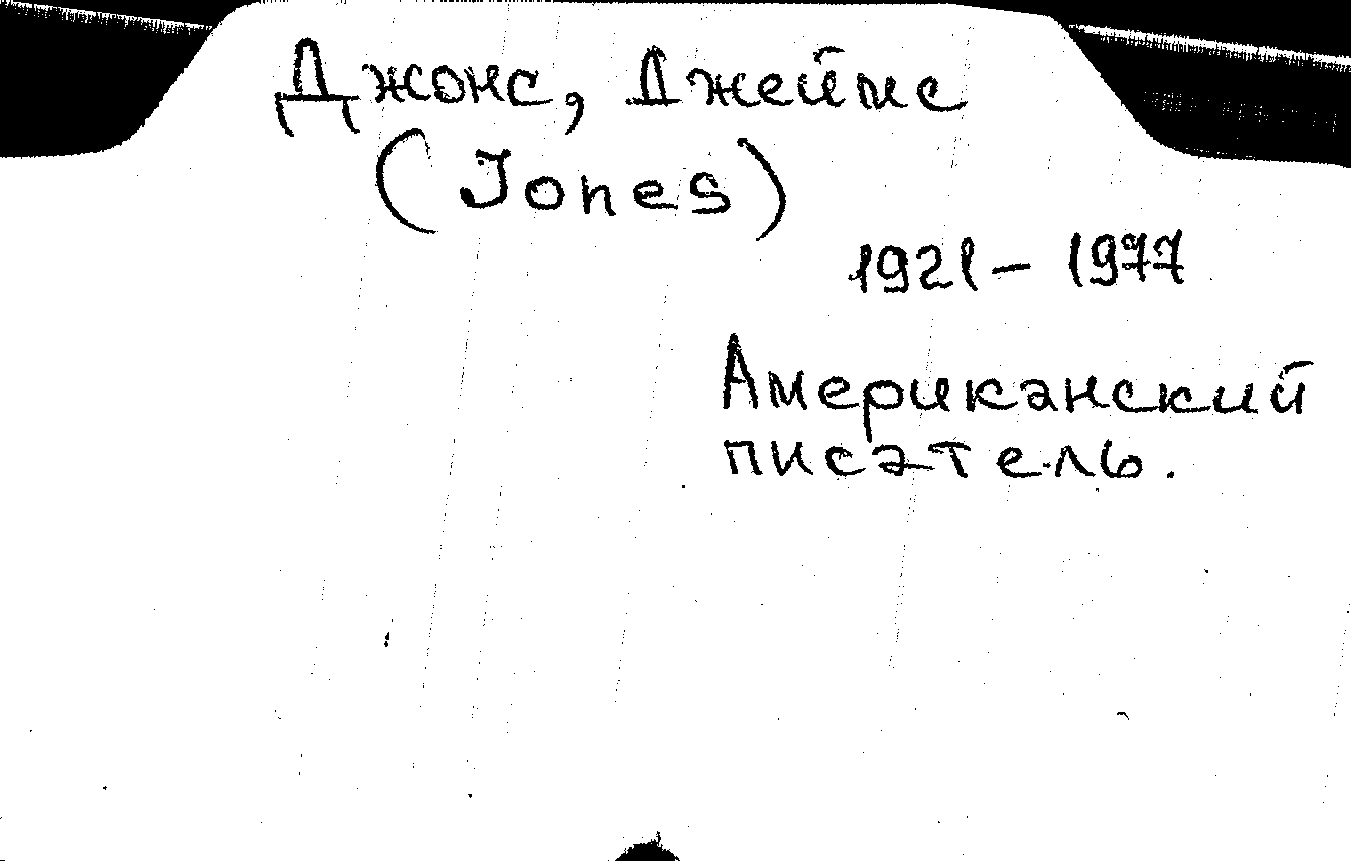 Джонс, Джеймс
(Jones)
1921 – 1977
Американский
писатель.